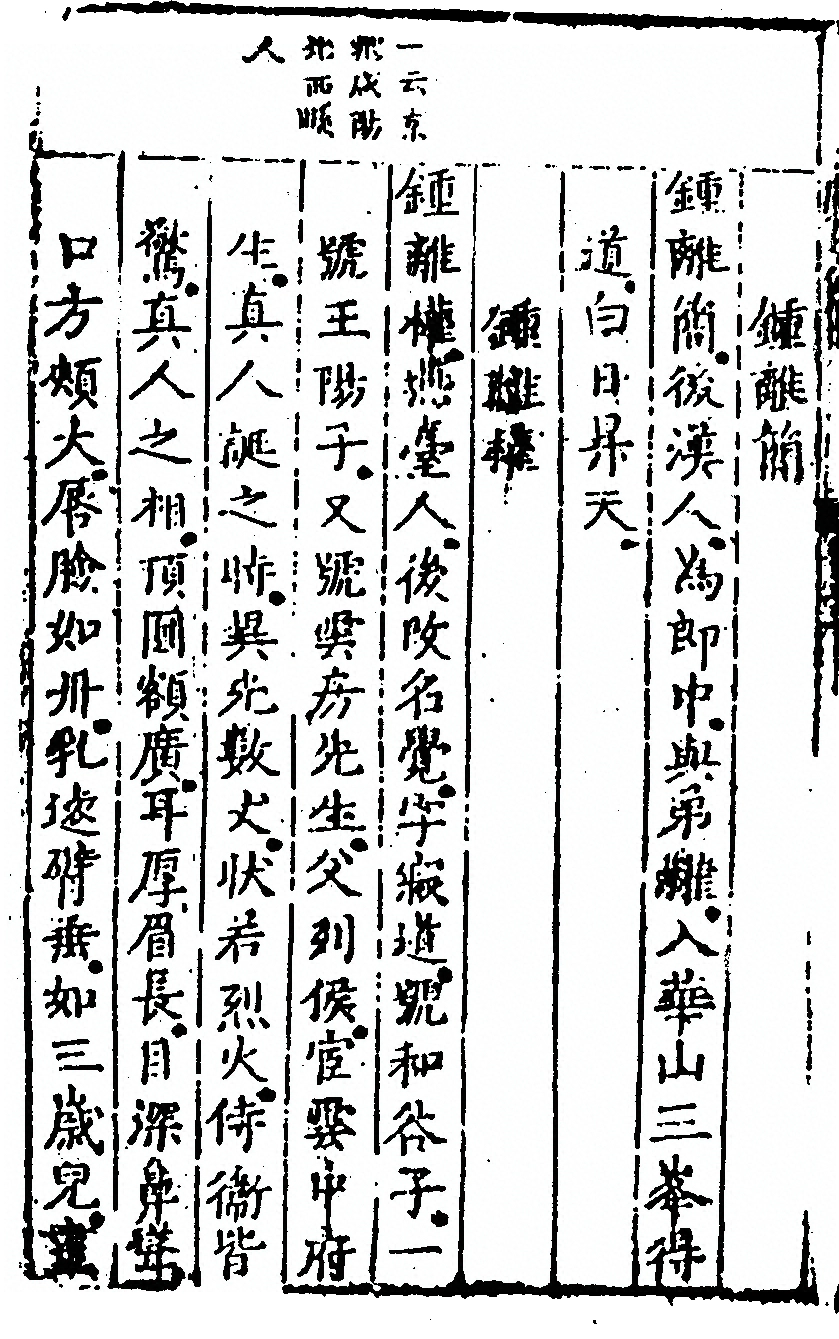 鍾離簡
鍾離簡。後漢人。為郎中。與弟權。入華山三峯得
道。白日昇天。
鍾離權
鍾離權。燕臺人。後改名覺。字寂道。號和谷子。一
號王陽子。又號雲房先生。父列侯。宦雲中府
生。真人誕之時。異光數丈。狀若烈火。侍衛皆
驚。真人之相。頂圓額廣。耳厚眉長。目深鼻聳。
口方頰大。唇臉如丹。乳遠臂垂。如三歲兒。晝
一云京
陽
西順
人